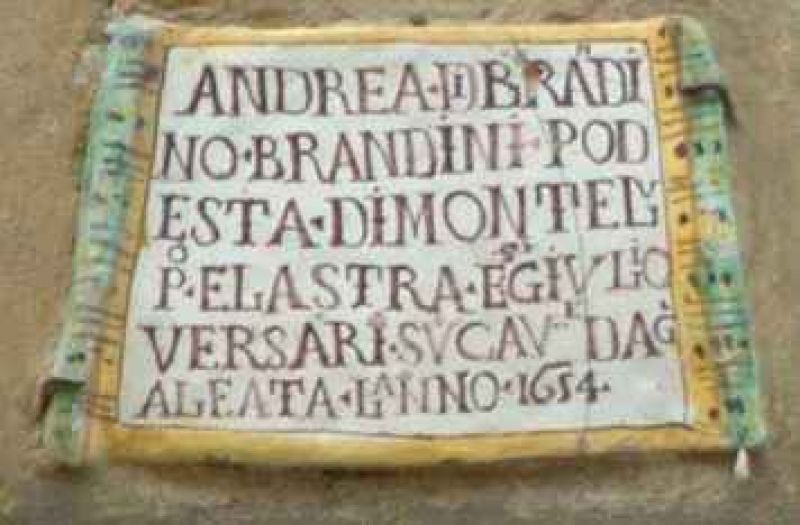 ANDREA·DI BRADI
NO·BRANDINI·POD
ESTA·DIMONTELV
P·ELASTRA·EGIVLIO
VERSARI·SVCAV DAG
ALEATA·LANNO·1654·